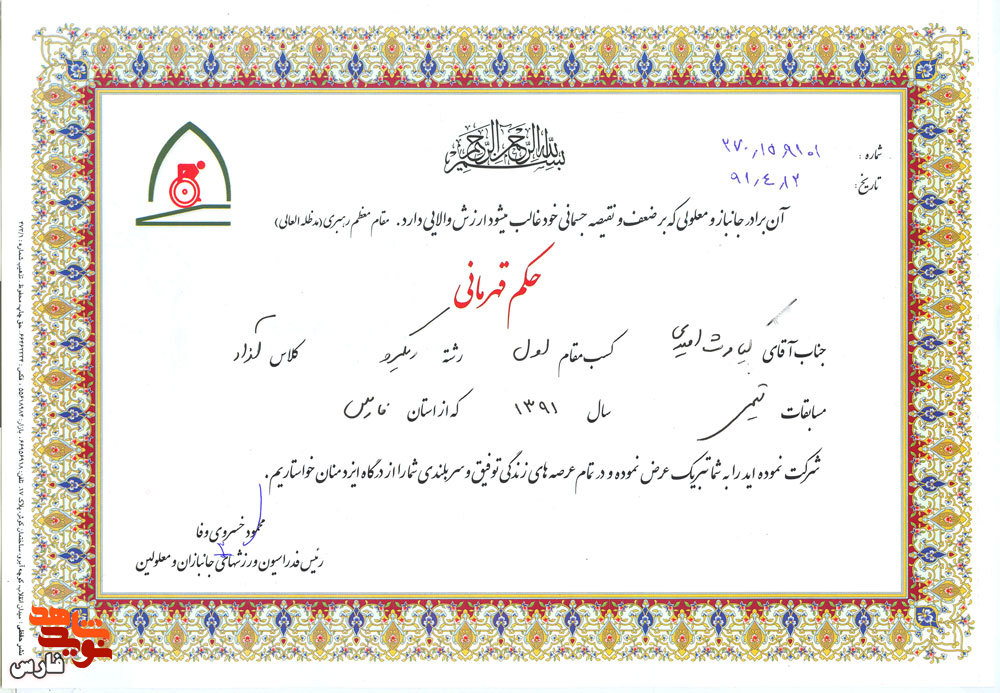 بسم الله الرحمن الرحیم
شماره : ۲۷۰٫۱۵۹۱۰۱
تاریخ: ۹۱٫۴٫۱۲
آن برادر جانباز و معلولی که بر ضعف و نقیصه جسمانی خود غالب میشود ارزش والایی دارد. مقام معظم رهبری (مدظله العالی)
حکم قهرمانی
جناب آقای کیامرث امیدی کسب مقام اول رشته کلاس آزاد
مسابقات تیمی سال ۱۳۹۱ که از استان فارس
شرکت نموده اید را به شما تبریک عرض نموده و در تمام عرصه های زندگی توفیق و سربلندی شما را از درگاه ایزد منان خواستاریم.
محمود خسروی وفا
رئیس فدراسیون ورزشهای جانبازان و معلولین
نوید شاهد
فارس